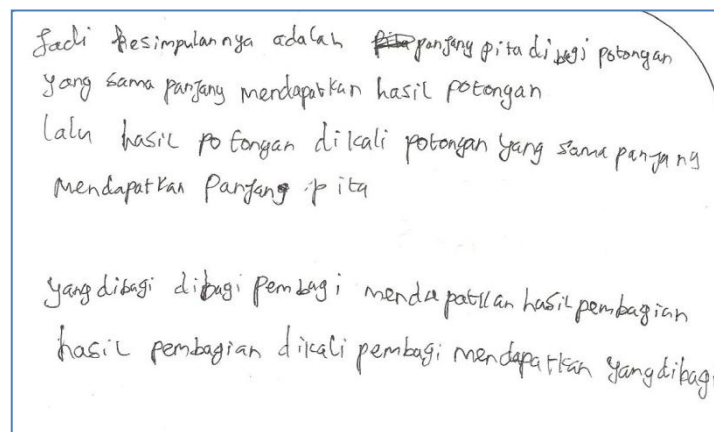 Jadi kesimpulannya adalah panjang pita dibagi potongan
yang sama panjang mendapatkan hasil potongan
lalu hasil potongan dikali potongan yang sama panjang
mendapatkan Panjang pita
yang dibagi dibagi pembagi mendapatkan hasil pembagian
hasil pembagian dikali pembagi mendapatkan yang dibagi